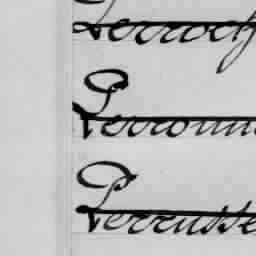 Perroch
Perronn
Perrusse